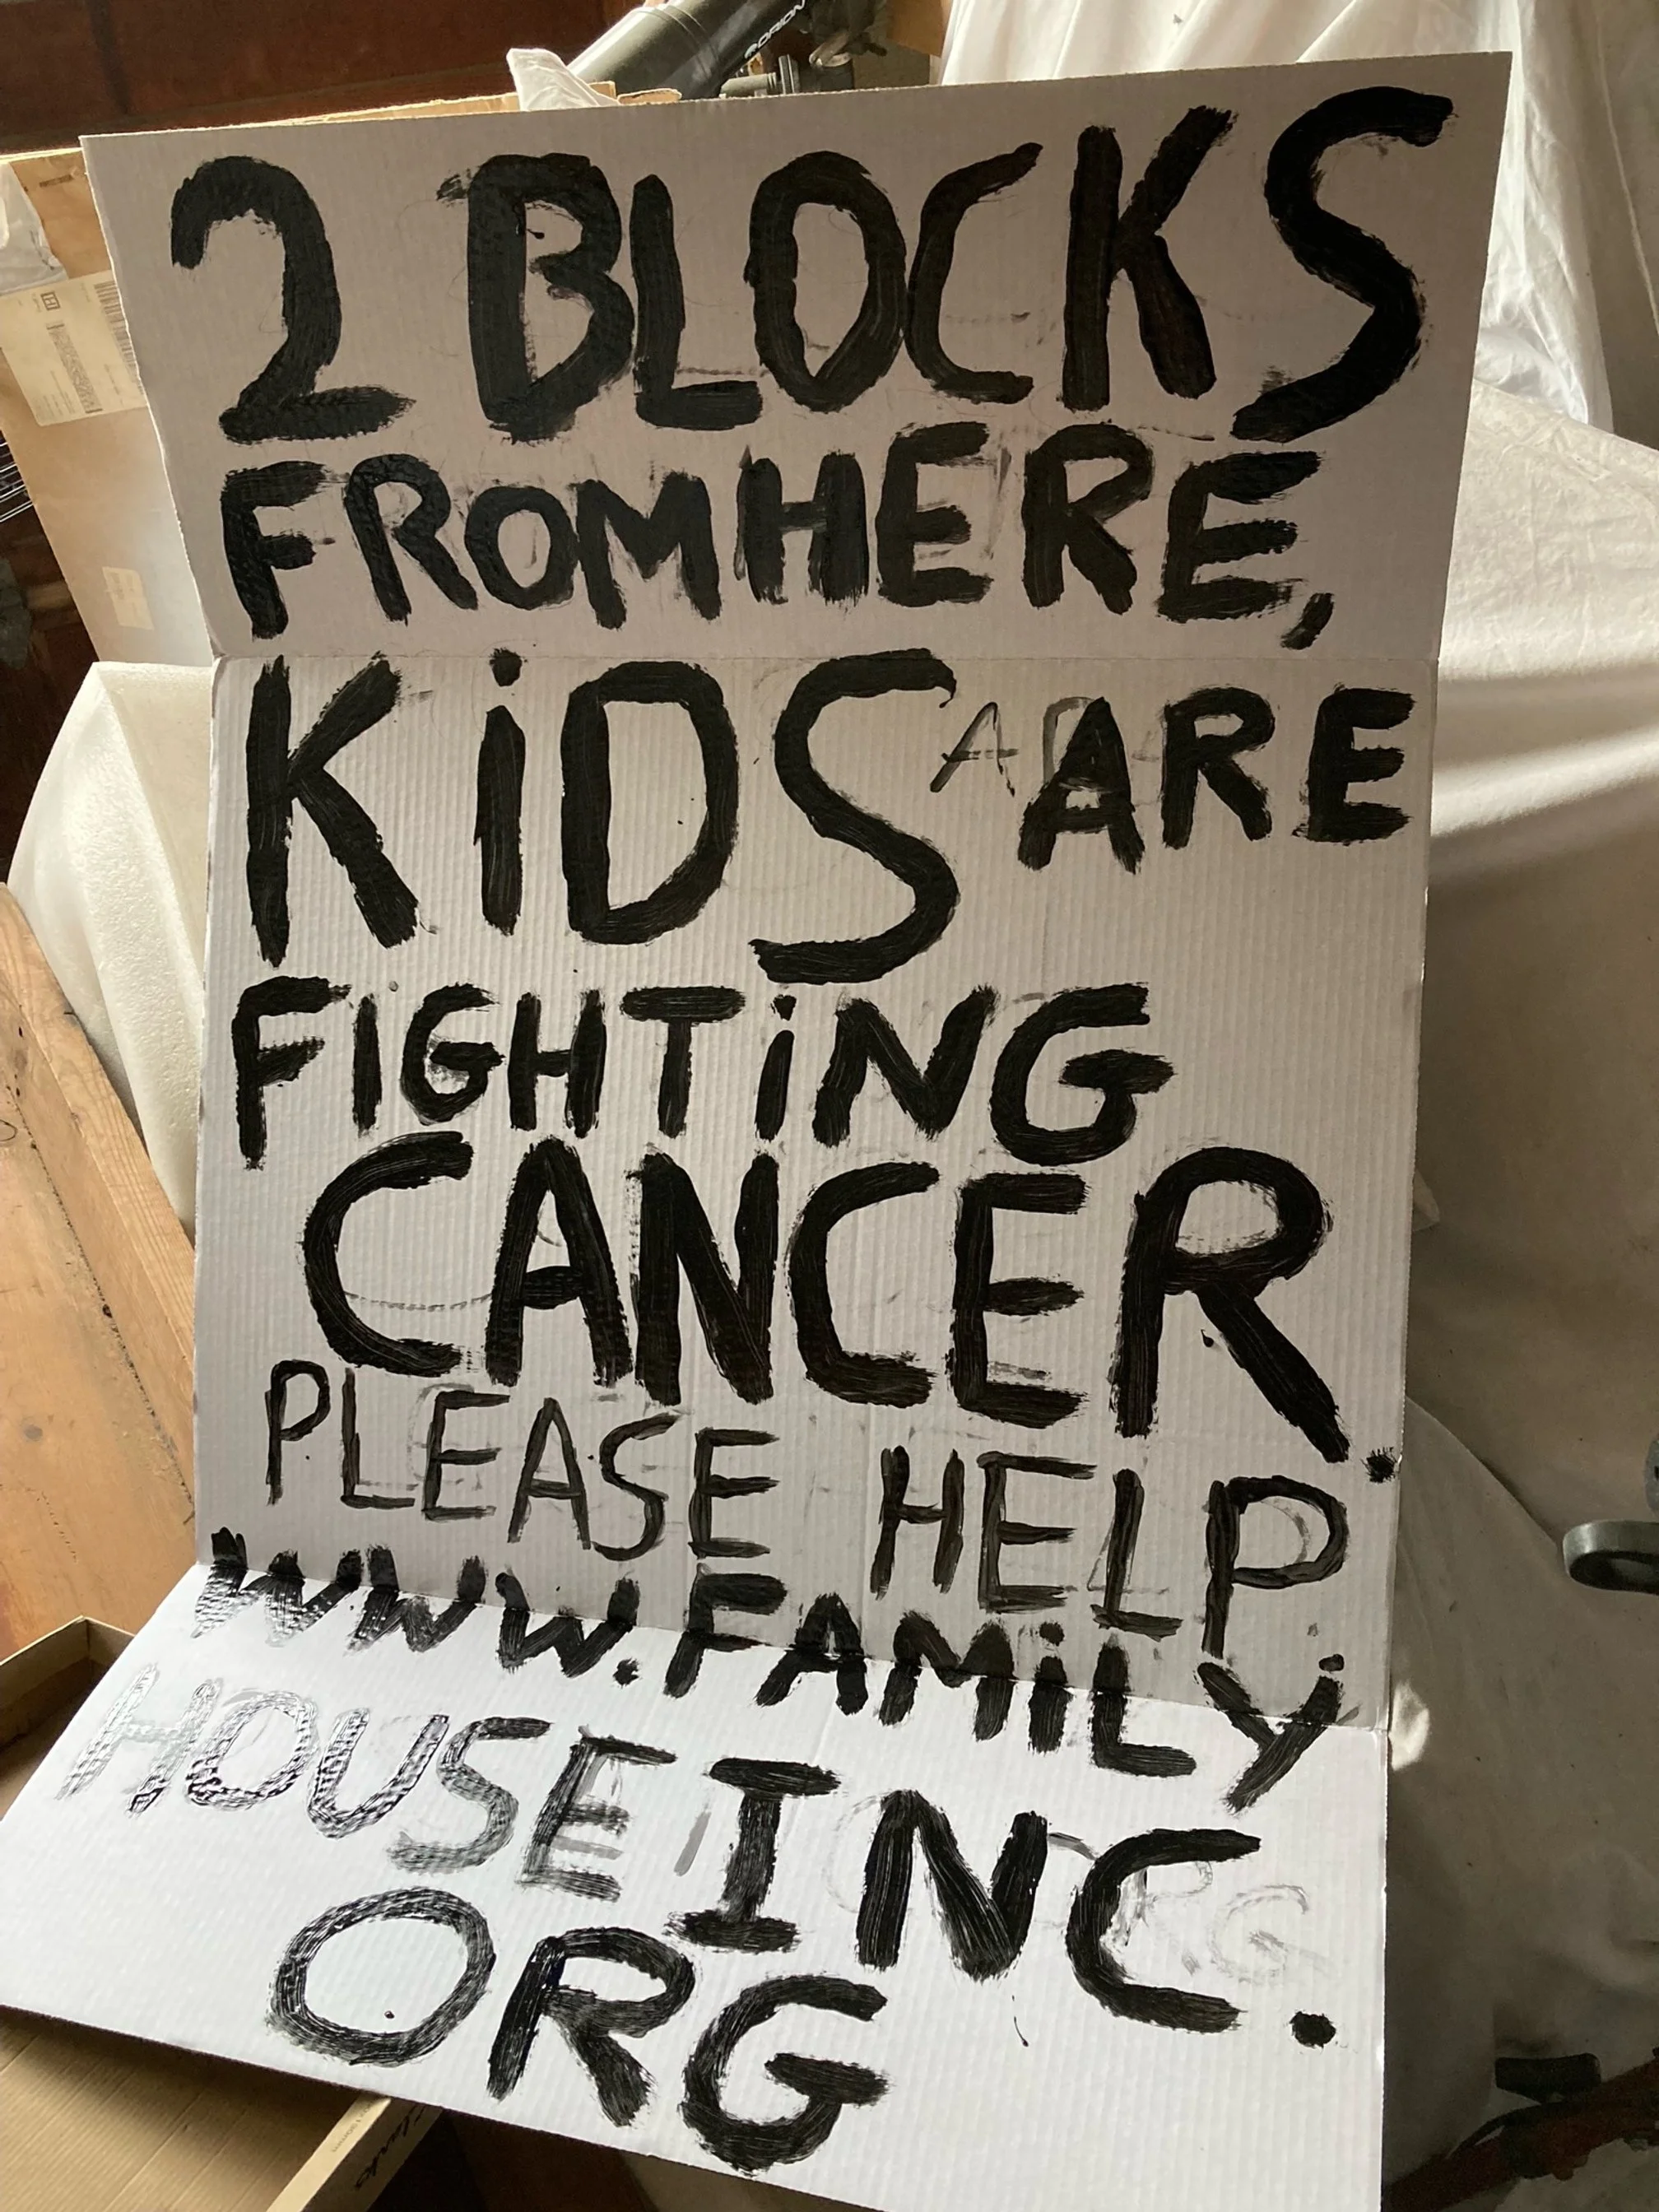 ORION
2 BLOCKS
FROM HERE,
KiDS ARE
FIGHTiNG
CANCER.
PLEASE HELP.
WWW.FAMiLY
HOUSE INC.
ORG